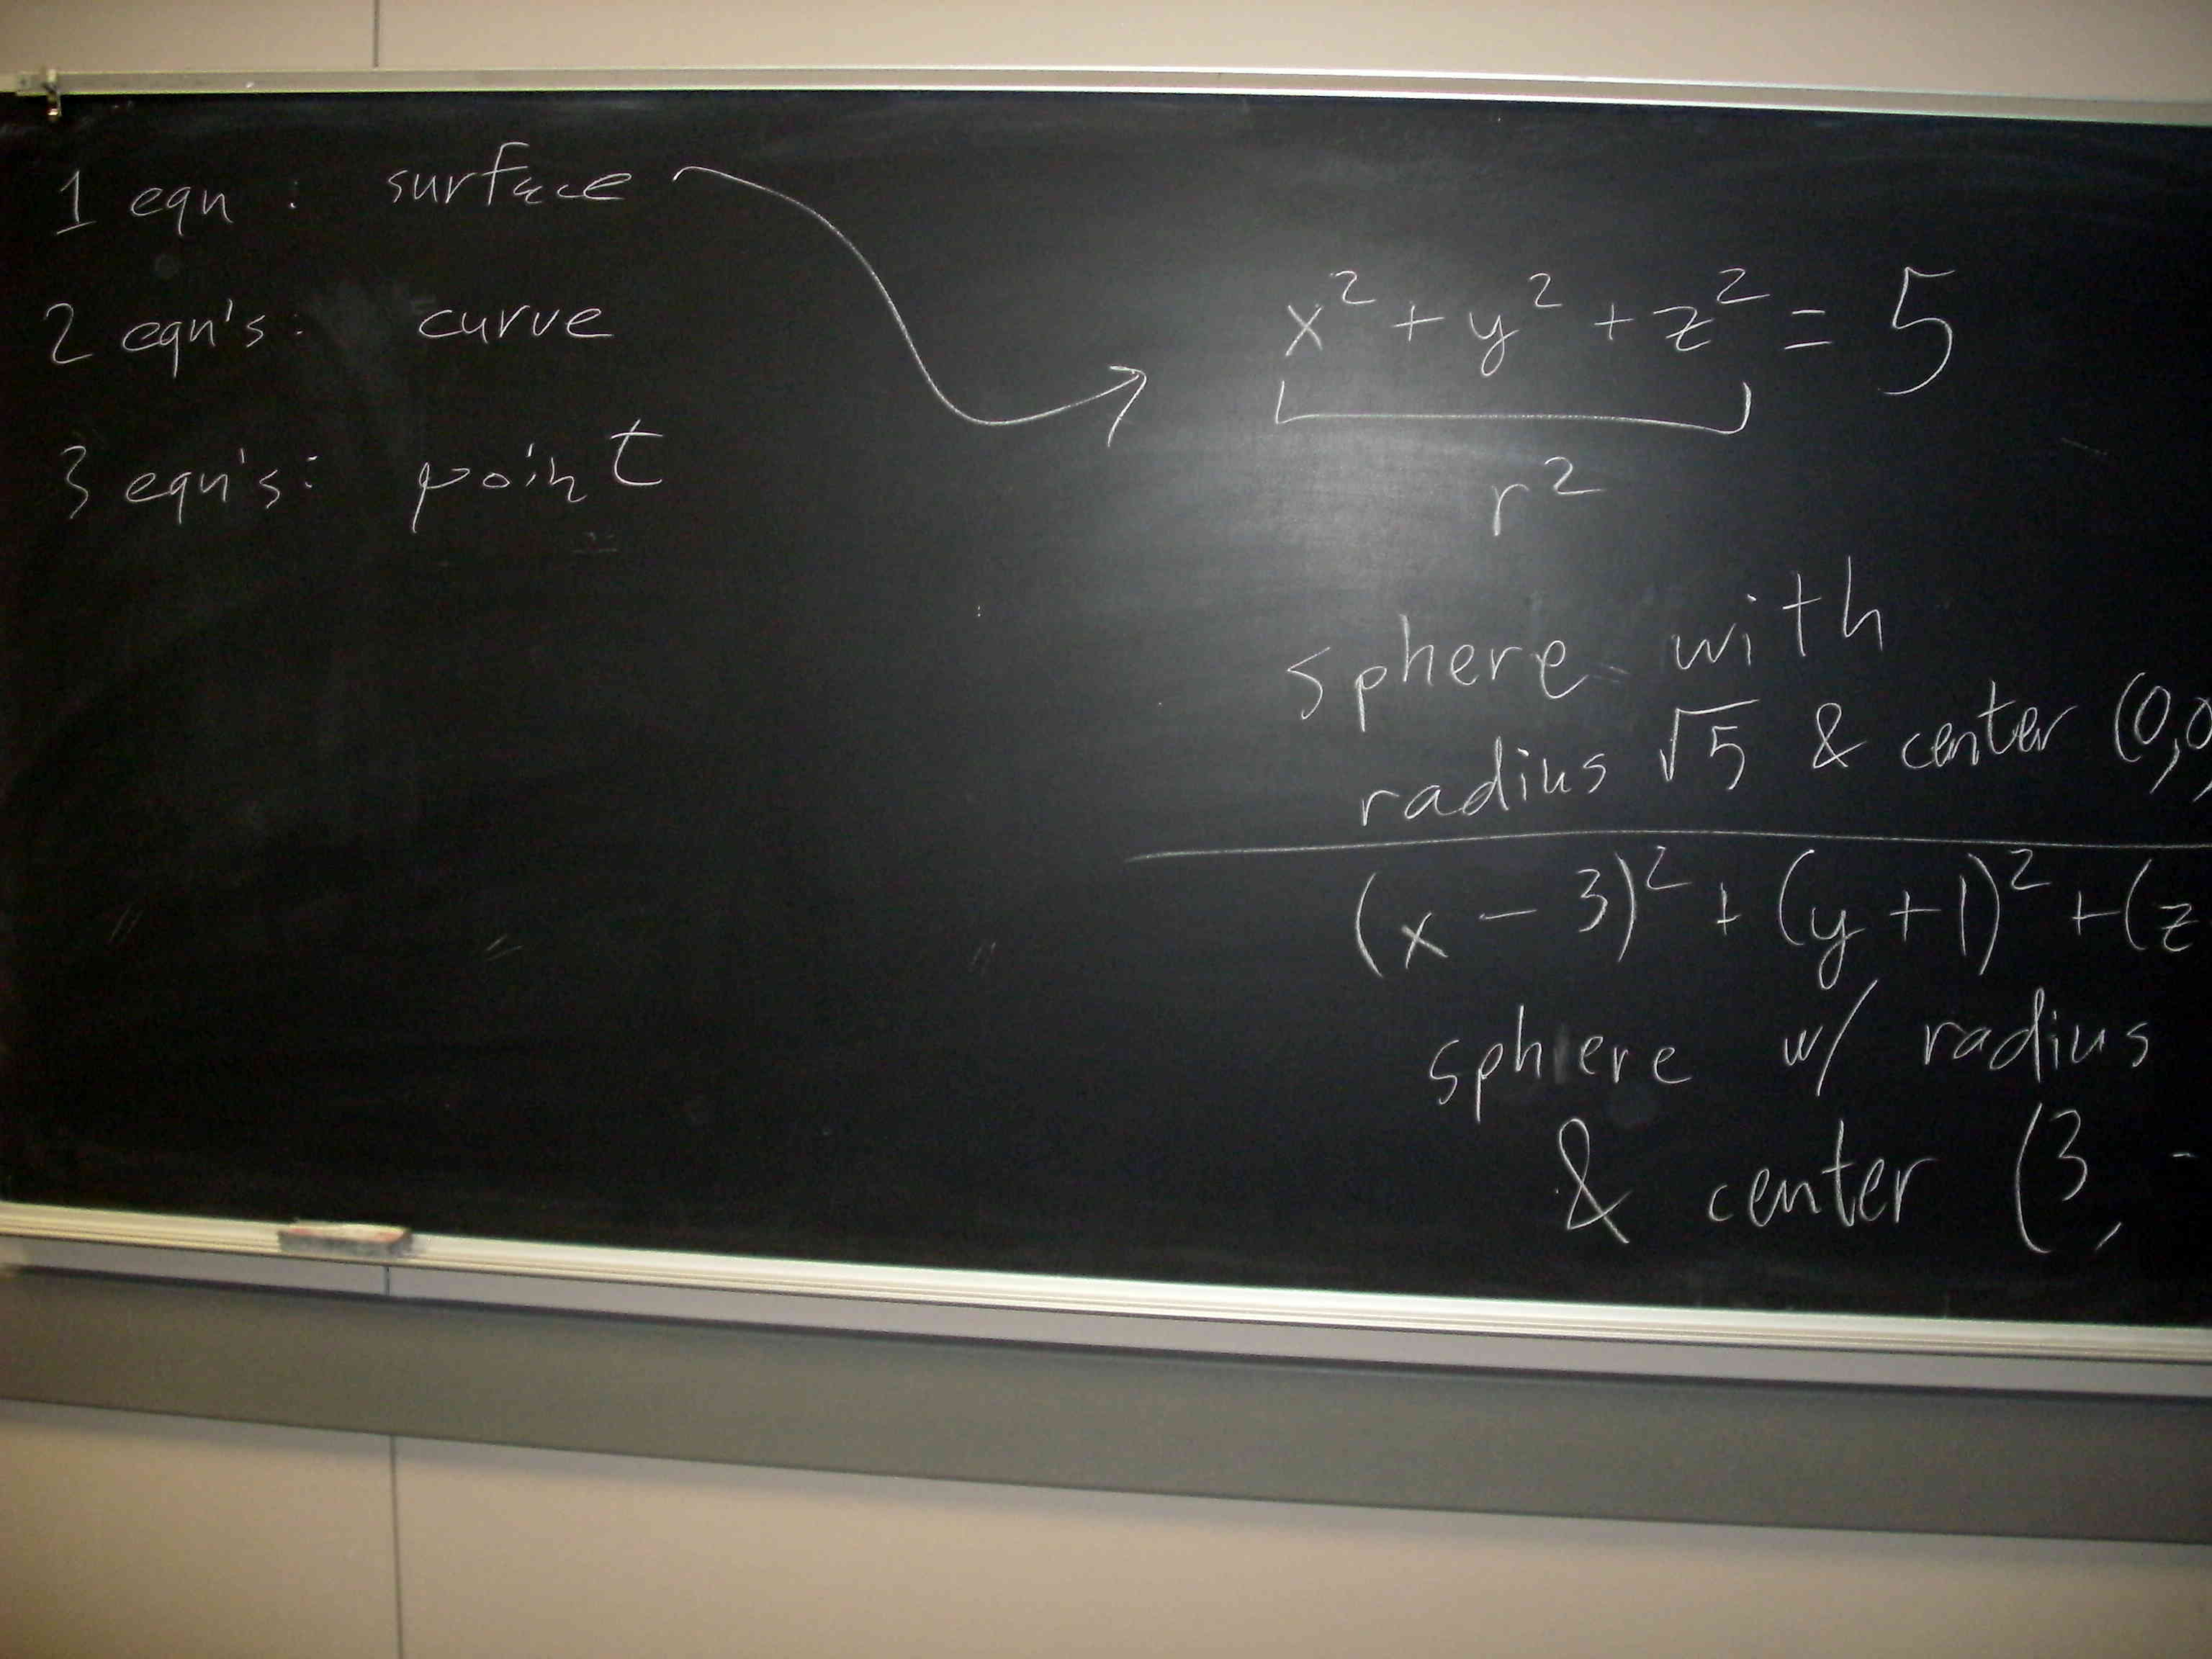 1 eqn : surface
2 eqn's: curve
3 eqn's: point
x² + y² + z² = 5
r²
sphere with
radius √5 & center (0,0,
(x - 3)² + (y + 1)² + (z
sphere w/ radius
& center (3, -